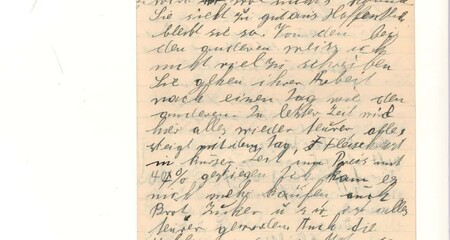 Sie sieht zu gut aus Hoffentlich
bleibt sie so. Von den bey
den anderen weiss ich
nicht viel zu schreiben
Sie gehen ihrer Arbeit
nach einen Tag wie den
anderen. In letzter Zeit wird
hier alles wieder teurer, alles
steigt mit dem Tag, Fleisch ist
in kurzer Zeit im Preis mit
40% gestiegen Ich kann es
nicht mehr kaufen auch
Brot, Zucker u s w ist alles
teurer geworden. Auch die